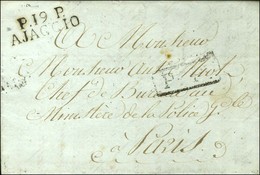 P.19.P.
AJACCIO
A Monsieur
Monsieur
Chef de Bureau au
Ministère de la Police Gle
à Paris